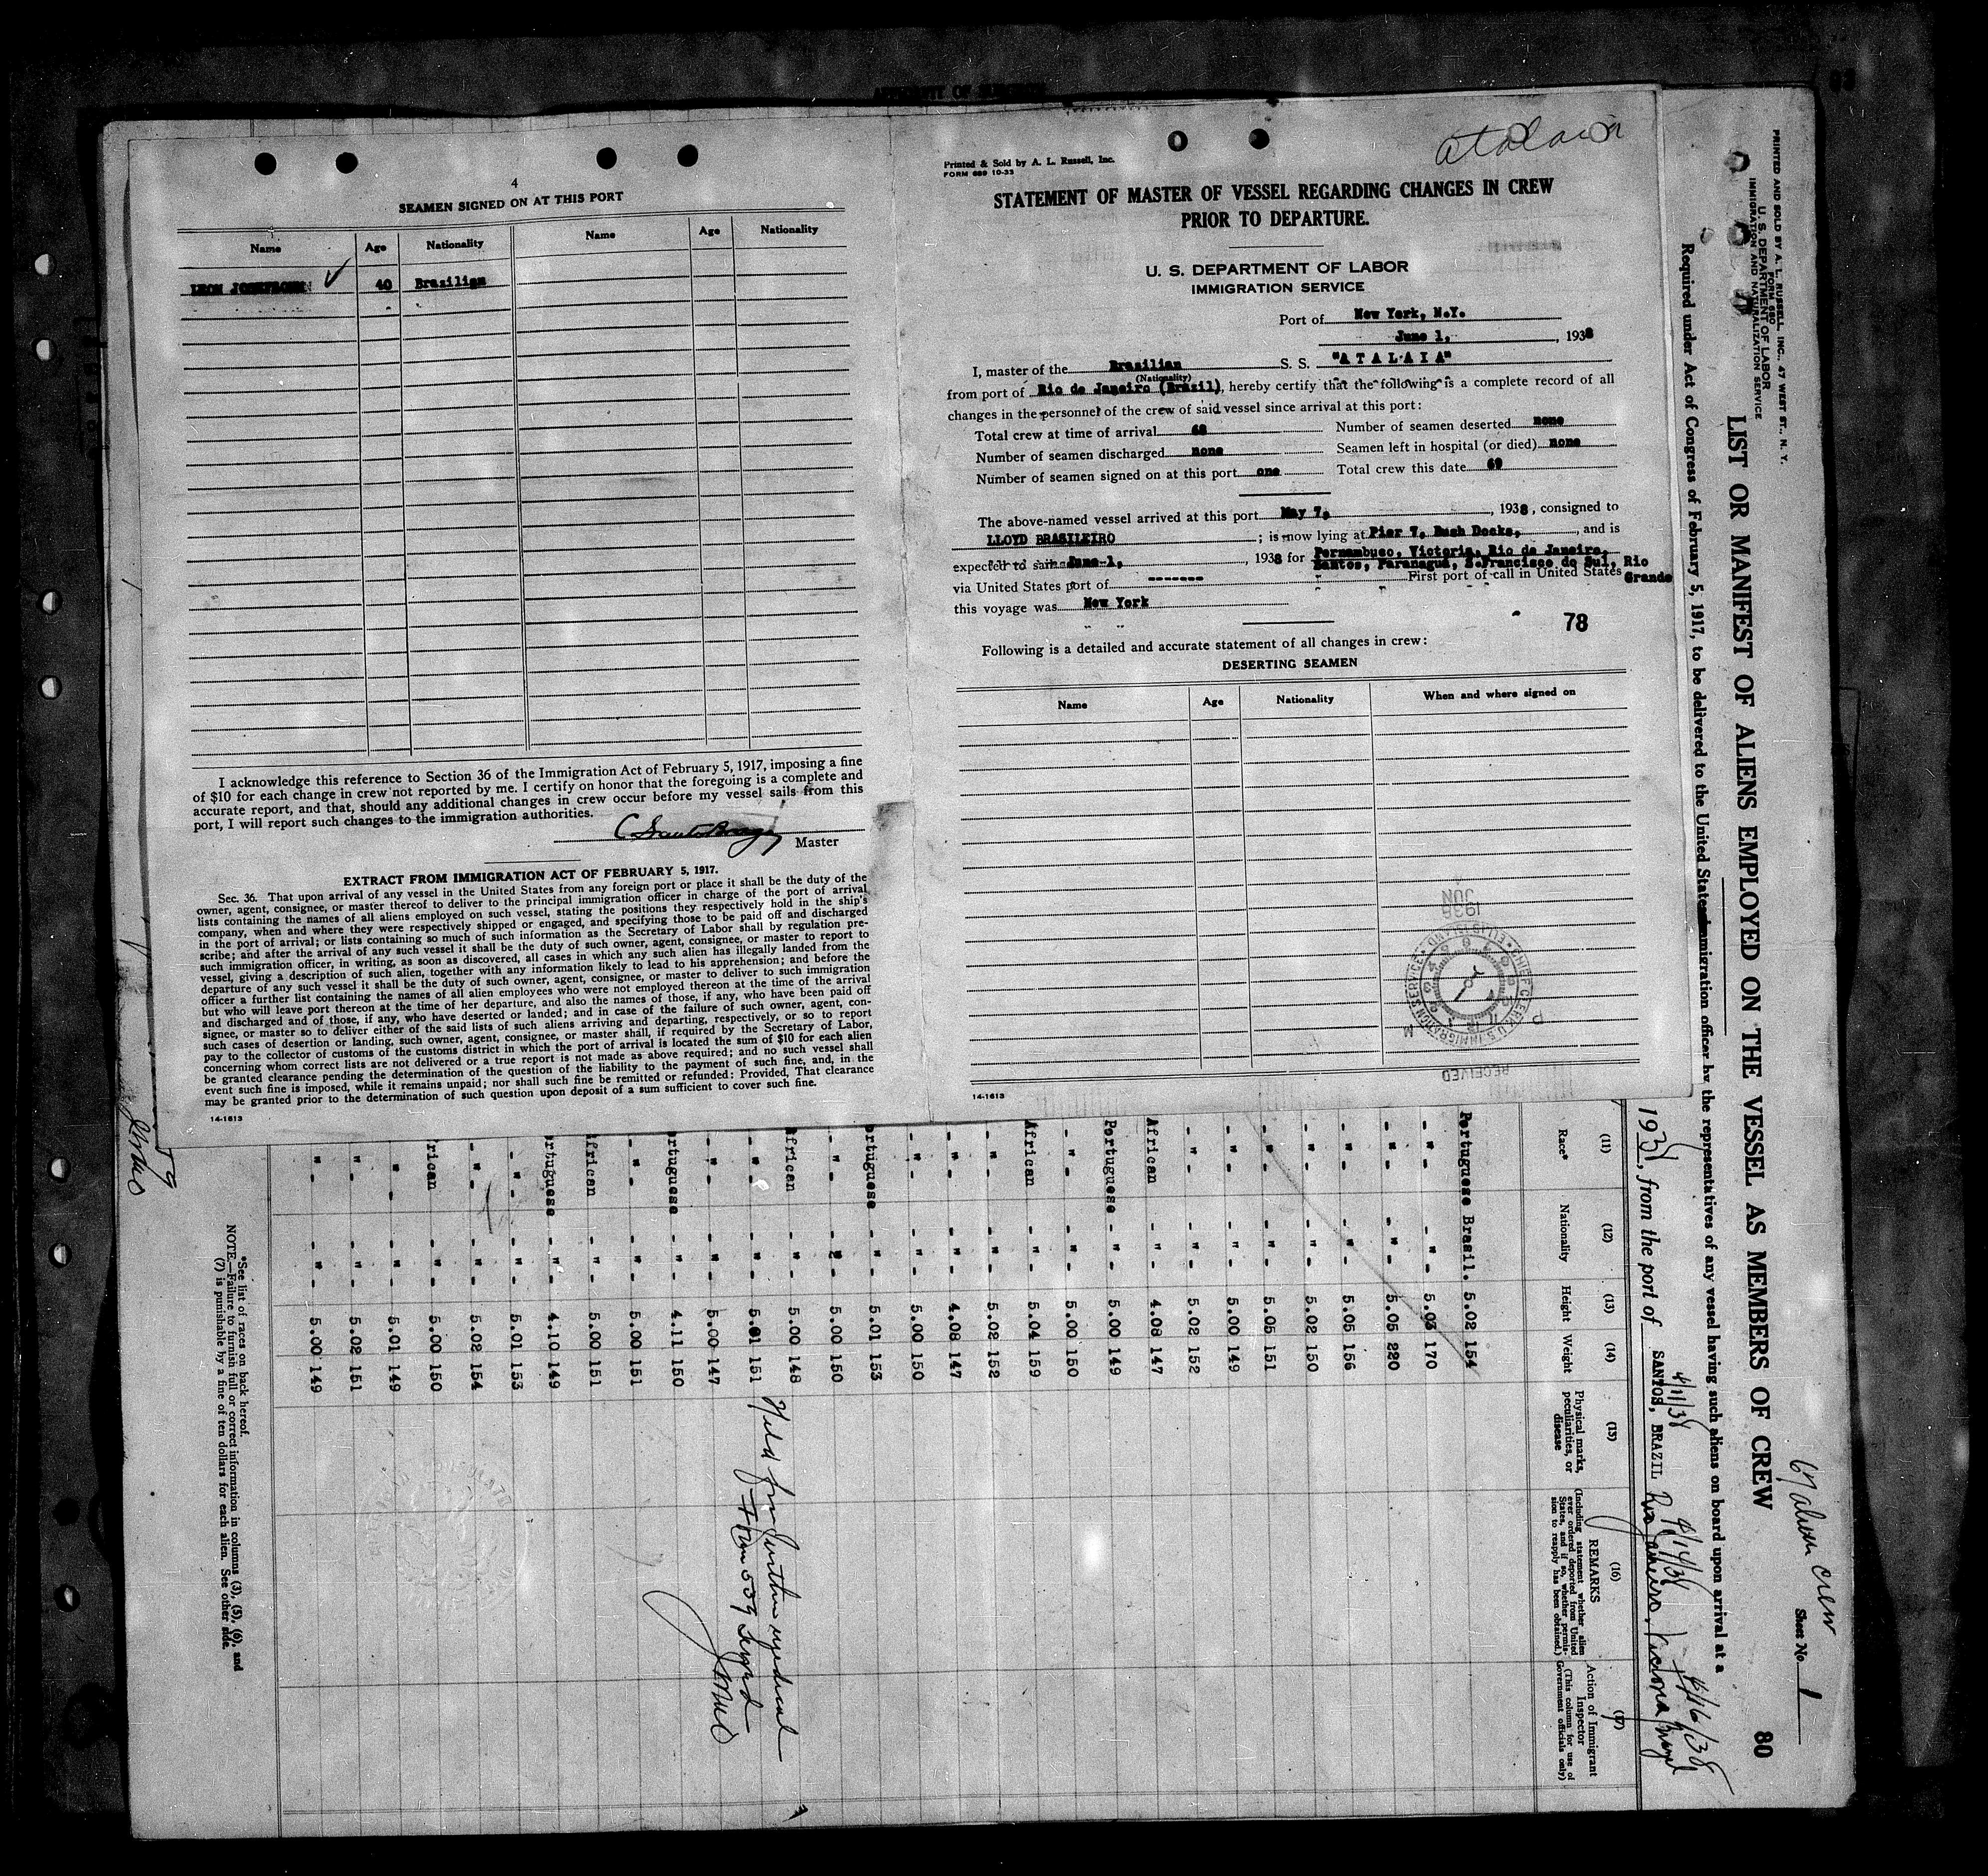 4
SEAMEN SIGNED ON AT THIS PORT
Name Age Nationality Name Age Nationality
LEON 40 Brazilian
I acknowledge this reference to Section 36 of the Immigration Act of February 5, 1917, imposing a fine
of $10 for each change in crew not reported by me. I certify on honor that the foregoing is a complete and
accurate report, and that, should any additional changes in crew occur before my vessel sails from this
port, I will report such changes to the immigration authorities.
Master
EXTRACT FROM IMMIGRATION ACT OF FEBRUARY 5, 1917.
Sec. 36. That upon arrival of any vessel in the United States from any foreign port or place it shall be the duty of the
owner, agent, consignee, or master thereof to deliver to the principal immigration officer in charge of the port of arrival
lists containing the names of all aliens employed on such vessel, stating the positions they respectively hold in the ship's
company, when and where they were respectively shipped or engaged, and specifying those to be paid off and discharged
in the port of arrival; or lists containing so much of such information as the Secretary of Labor shall by regulation pre-
scribe; and after the arrival of any such vessel it shall be the duty of such owner, agent, consignee, or master to report to
such immigration officer, in writing, as soon as discovered, all cases in which any such alien has illegally landed from the
vessel, giving a description of such alien, together with any information likely to lead to his apprehension; and before the
departure of any such vessel it shall be the duty of such owner, agent, consignee, or master to deliver to such immigration
officer a further list containing the names of all alien employees who were not employed thereon at the time of the arrival
but who will leave port thereon at the time of her departure, and also the names of those, if any, who have been paid off
and discharged and of those, if any, who have deserted or landed; and in case of the failure of such owner, agent, con-
signee, or master so to deliver either of the said lists of such aliens arriving and departing, respectively, or so to report
such cases of desertion or landing, such owner, agent, consignee, or master shall, if required by the Secretary of Labor,
pay to the collector of customs of the customs district in which the port of arrival is located the sum of $10 for each alien
concerning whom correct lists are not delivered or a true report is not made as above required; and no such vessel shall
be granted clearance pending the determination of the question of the liability to the payment of such fine, and, in the
event such fine is imposed, while it remains unpaid; nor shall such fine be remitted or refunded: Provided, That clearance
may be granted prior to the determination of such question upon deposit of a sum sufficient to cover such fine.
14-1613
Atalaia
Printed & Sold by A. L. Russell, Inc.
FORM 689 10-33
STATEMENT OF MASTER OF VESSEL REGARDING CHANGES IN CREW
PRIOR TO DEPARTURE.
U. S. DEPARTMENT OF LABOR
IMMIGRATION SERVICE
Port of New York, N.Y.
June 1, , 1938
I, master of the Brazilian S. S. "ATALAIA"
(Nationality)
from port of Rio de Janeiro (Brazil), hereby certify that the following is a complete record of all
changes in the personnel of the crew of said vessel since arrival at this port:
Total crew at time of arrival 68 Number of seamen deserted none
Number of seamen discharged none Seamen left in hospital (or died) none
Number of seamen signed on at this port one Total crew this date 69
The above-named vessel arrived at this port May 7, , 1938, consigned to
LLOYD BRASILEIRO ; is now lying at Pier 7, Bush Docks, , and is
expected to sail June 1, , 1938 for Pernambuco, Victoria, Rio de Janeiro,
Santos, Paranagua, S.Francisco do Sul, Rio
Grande
via United States port of ------- First port of call in United States
this voyage was New York
78
Following is a detailed and accurate statement of all changes in crew:
DESERTING SEAMEN
Name Age Nationality When and where signed on
1938
JUN
RECEIVED
14-1613
PRINTED AND SOLD BY A. L. RUSSELL, INC., 47 WEST ST., N. Y.
FORM 680
U. S. DEPARTMENT OF LABOR
IMMIGRATION AND NATURALIZATION SERVICE
67 alien crew
Sheet No. 1
80
LIST OR MANIFEST OF ALIENS EMPLOYED ON THE VESSEL AS MEMBERS OF CREW
Required under Act of Congress of February 5, 1917, to be delivered to the United States immigration officer by the representatives of any vessel having such aliens on board upon arrival at a
4/11/38 4/14/38 4/16/38
1938, from the port of SANTOS, BRAZIL Rio Janeiro, Victoria
(11) (12) (13) (14) (15) (16) (17)
Race* Nationality Height Weight Physical marks, peculiarities, or disease
REMARKS
(Including statement whether alien ever ordered deported from United States, and if so, whether permission to reapply has been obtained.)
Action of Immigrant Inspector
(This column for use of Government officials only)
Portuguese Brasil. 5.02 154
- " - - " - 5.03 170
- " - - " - 5.05 220
- " - - " - 5.05 156
- " - - " - 5.02 150
- " - - " - 5.05 151
- " - - " - 5.00 149
- " - - " - 5.02 152
African - " - 4.08 147
Portuguese - " - 5.00 149
- " - - " - 5.00 150
African - " - 5.04 159
- " - - " - 5.02 152
- " - - " - 4.08 147
- " - - " - 5.00 150
ortuguese - " - 5.01 153
- " - - " - 5.00 150
African - " - 5.00 148
- " - - " - 5.01 151
Held for further medical
Form 539 served
- " - - " - 5.00 147
ortuguese - " - 4.11 150
- " - - " - 5.00 151
frican - " - 5.00 151
ortuguese - " - 4.10 149
- " - - " - 5.01 153
- " - - " - 5.02 154
rican - " - 5.00 150
" - - " - 5.01 149
" - - " - 5.02 151
" - - " - 5.00 149
*See list of races on back hereof.
NOTE.—Failure to furnish full or correct information in columns (3), (5), (6), and
(7) is punishable by a fine of ten dollars for each alien. See other side.